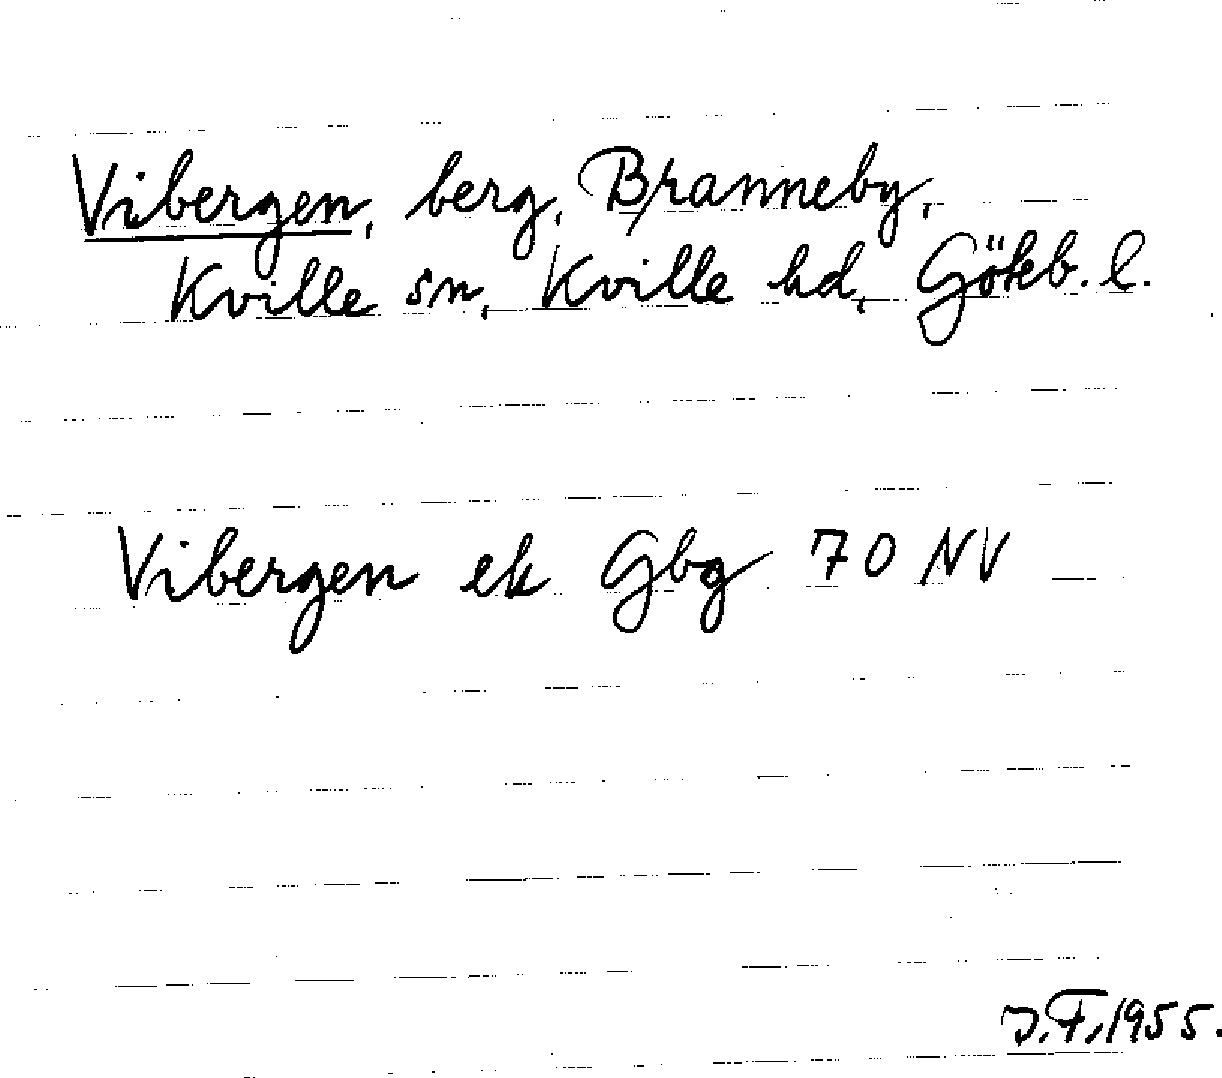 Vibergen, berg, Branneby,
Kville sn, Kville hd, Göteb. l.
Vibergen ek Gbg 70 NV
J.F. 1955.